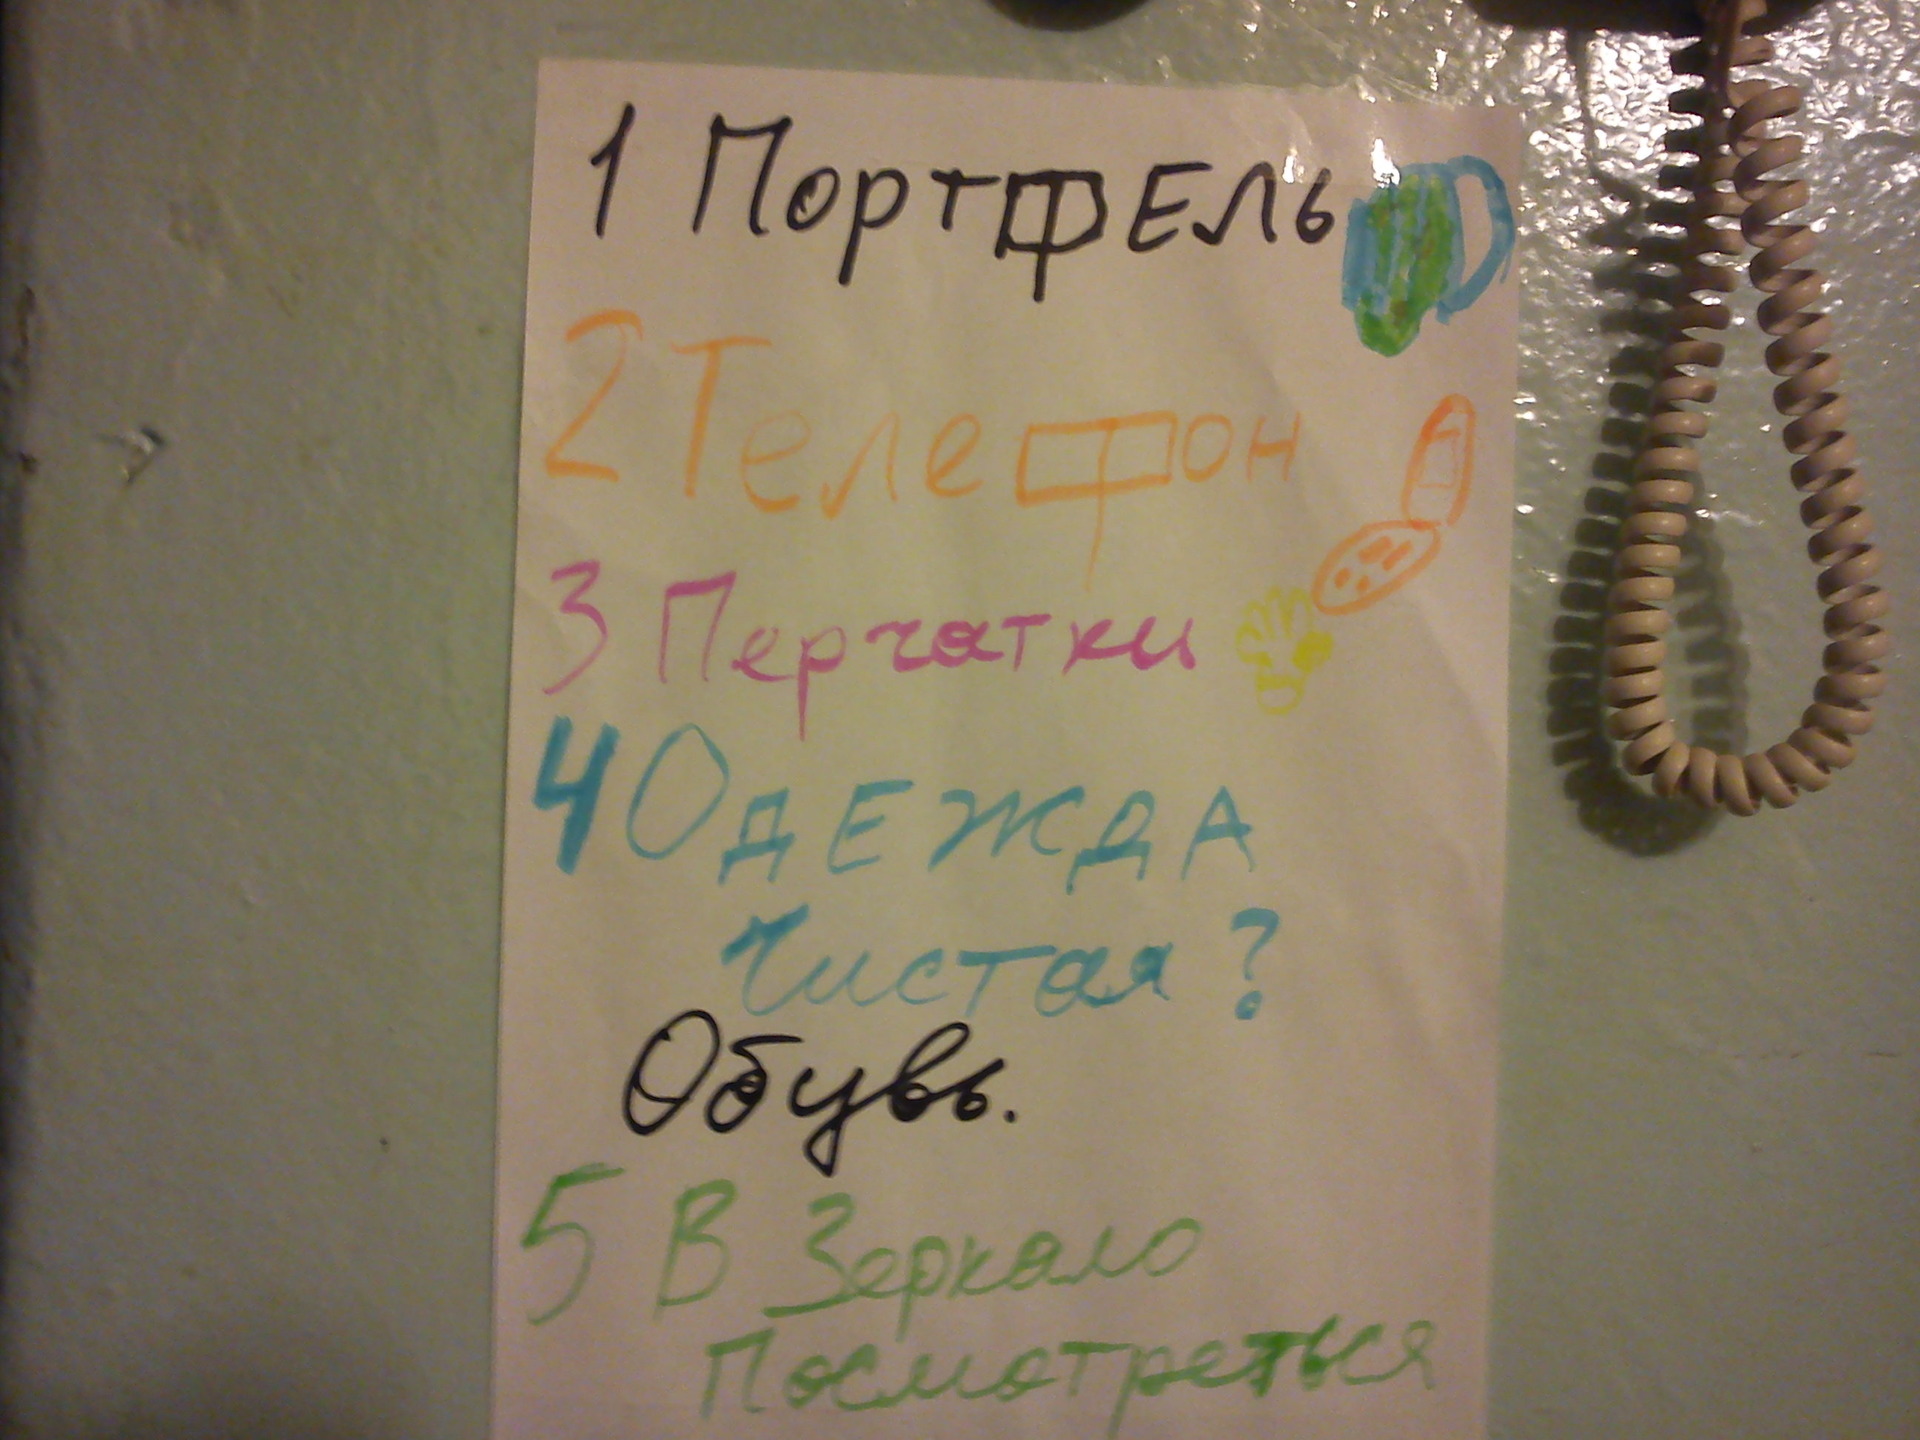 1 Портфель
2 Телефон
3 Перчатки
4 Одежда
Чистая?
Обувь.
5 В Зеркало
Посмотреться